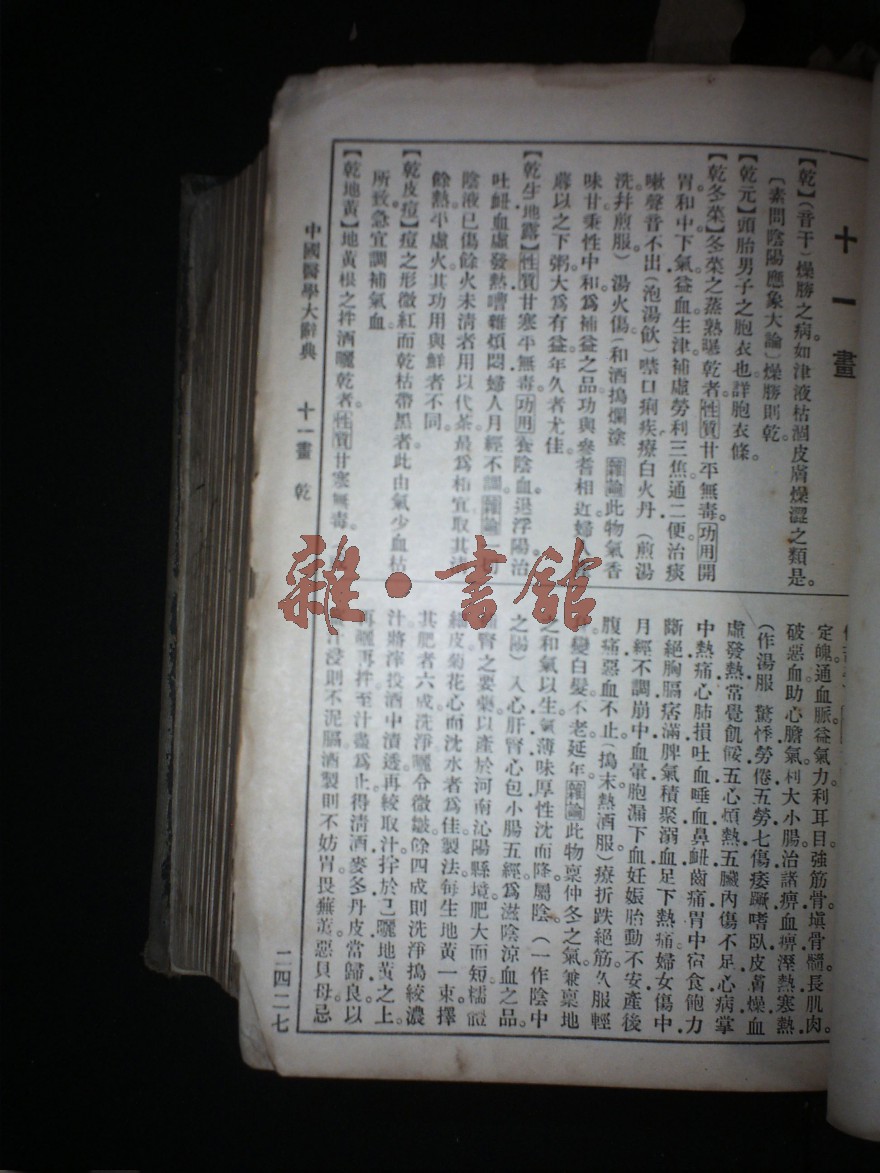 十一畫
【乾】(音干)燥勝之病如津液枯涸皮膚燥澀之類是。
(素問陰陽應象大論)燥勝則乾。
【乾元】頭胎男子之胞衣也詳胞衣條。
【乾冬菜】冬菜之蒸熟曝乾者。性質甘平無毒。功用開
胃和中下氣益血生津補虛勞利三焦通二便治痰
嗽聲音不出(泡湯飲)噤口痢疾療白火丹(煎湯
洗幷煎服)湯火傷(和酒搗爛塗)雜論此物氣香
味甘秉性中和爲補益之品功與參耆相近婦人
蓐以之下粥大爲有益年久者尤佳。
【乾生地露】性質甘寒平無毒。功用養陰血退浮陽治
吐衄血虛發熱嘈雜煩悶婦人月經不調。雜論一切
陰液已傷餘火未清者用以代茶最爲相宜取其清
餘熱平虛火其功用與鮮者不同。
【乾皮痘】痘之形微紅而乾枯帶黑者此由氣少血枯
所致急宜調補氣血。
【乾地黃】地黃根之拌酒曬乾者。性質甘寒無毒。
定魄通血脈益氣力利耳目強筋骨塡骨髓長肌肉。
破惡血助心膽氣利大小腸治諸痹血痹溼熱寒熱
(作湯服)驚悸勞倦五勞七傷痿蹶嗜臥皮膚燥血
虛發熱常覺飢餒五心煩熱五臟內傷不足心病掌
中熱痛心肺損吐血唾血鼻衄齒痛胃中宿食飽力
斷絕胸膈痞滿脾氣積聚溺血足下熱痛婦女傷中
月經不調崩中血暈胞漏下血妊娠胎動不安產後
腹痛惡血不止(搗末熱酒服)療折跌絕筋久服輕
變白髮不老延年。雜論此物稟仲冬之氣兼稟地
之和氣以生氣薄味厚性沈而降屬陰(一作陰中
之陽)入心肝腎心包小腸五經爲滋陰涼血之品。
腎之要藥以產於河南沁陽縣境肥大而短糯體
細皮菊花心而沈水者爲佳製法每生地黃一束擇
其肥者六成洗淨曬令微皺餘四成則洗淨搗絞濃
汁將滓投酒中漬透再絞取汁拌於已曬地黃之上
再曬再拌至汁盡爲止得清酒麥冬丹皮當歸良以
汁浸則不泥膈酒製則不妨胃畏蕪荑惡貝母忌
中國醫學大辭典 十一畫 乾
二四二七
雜·書館